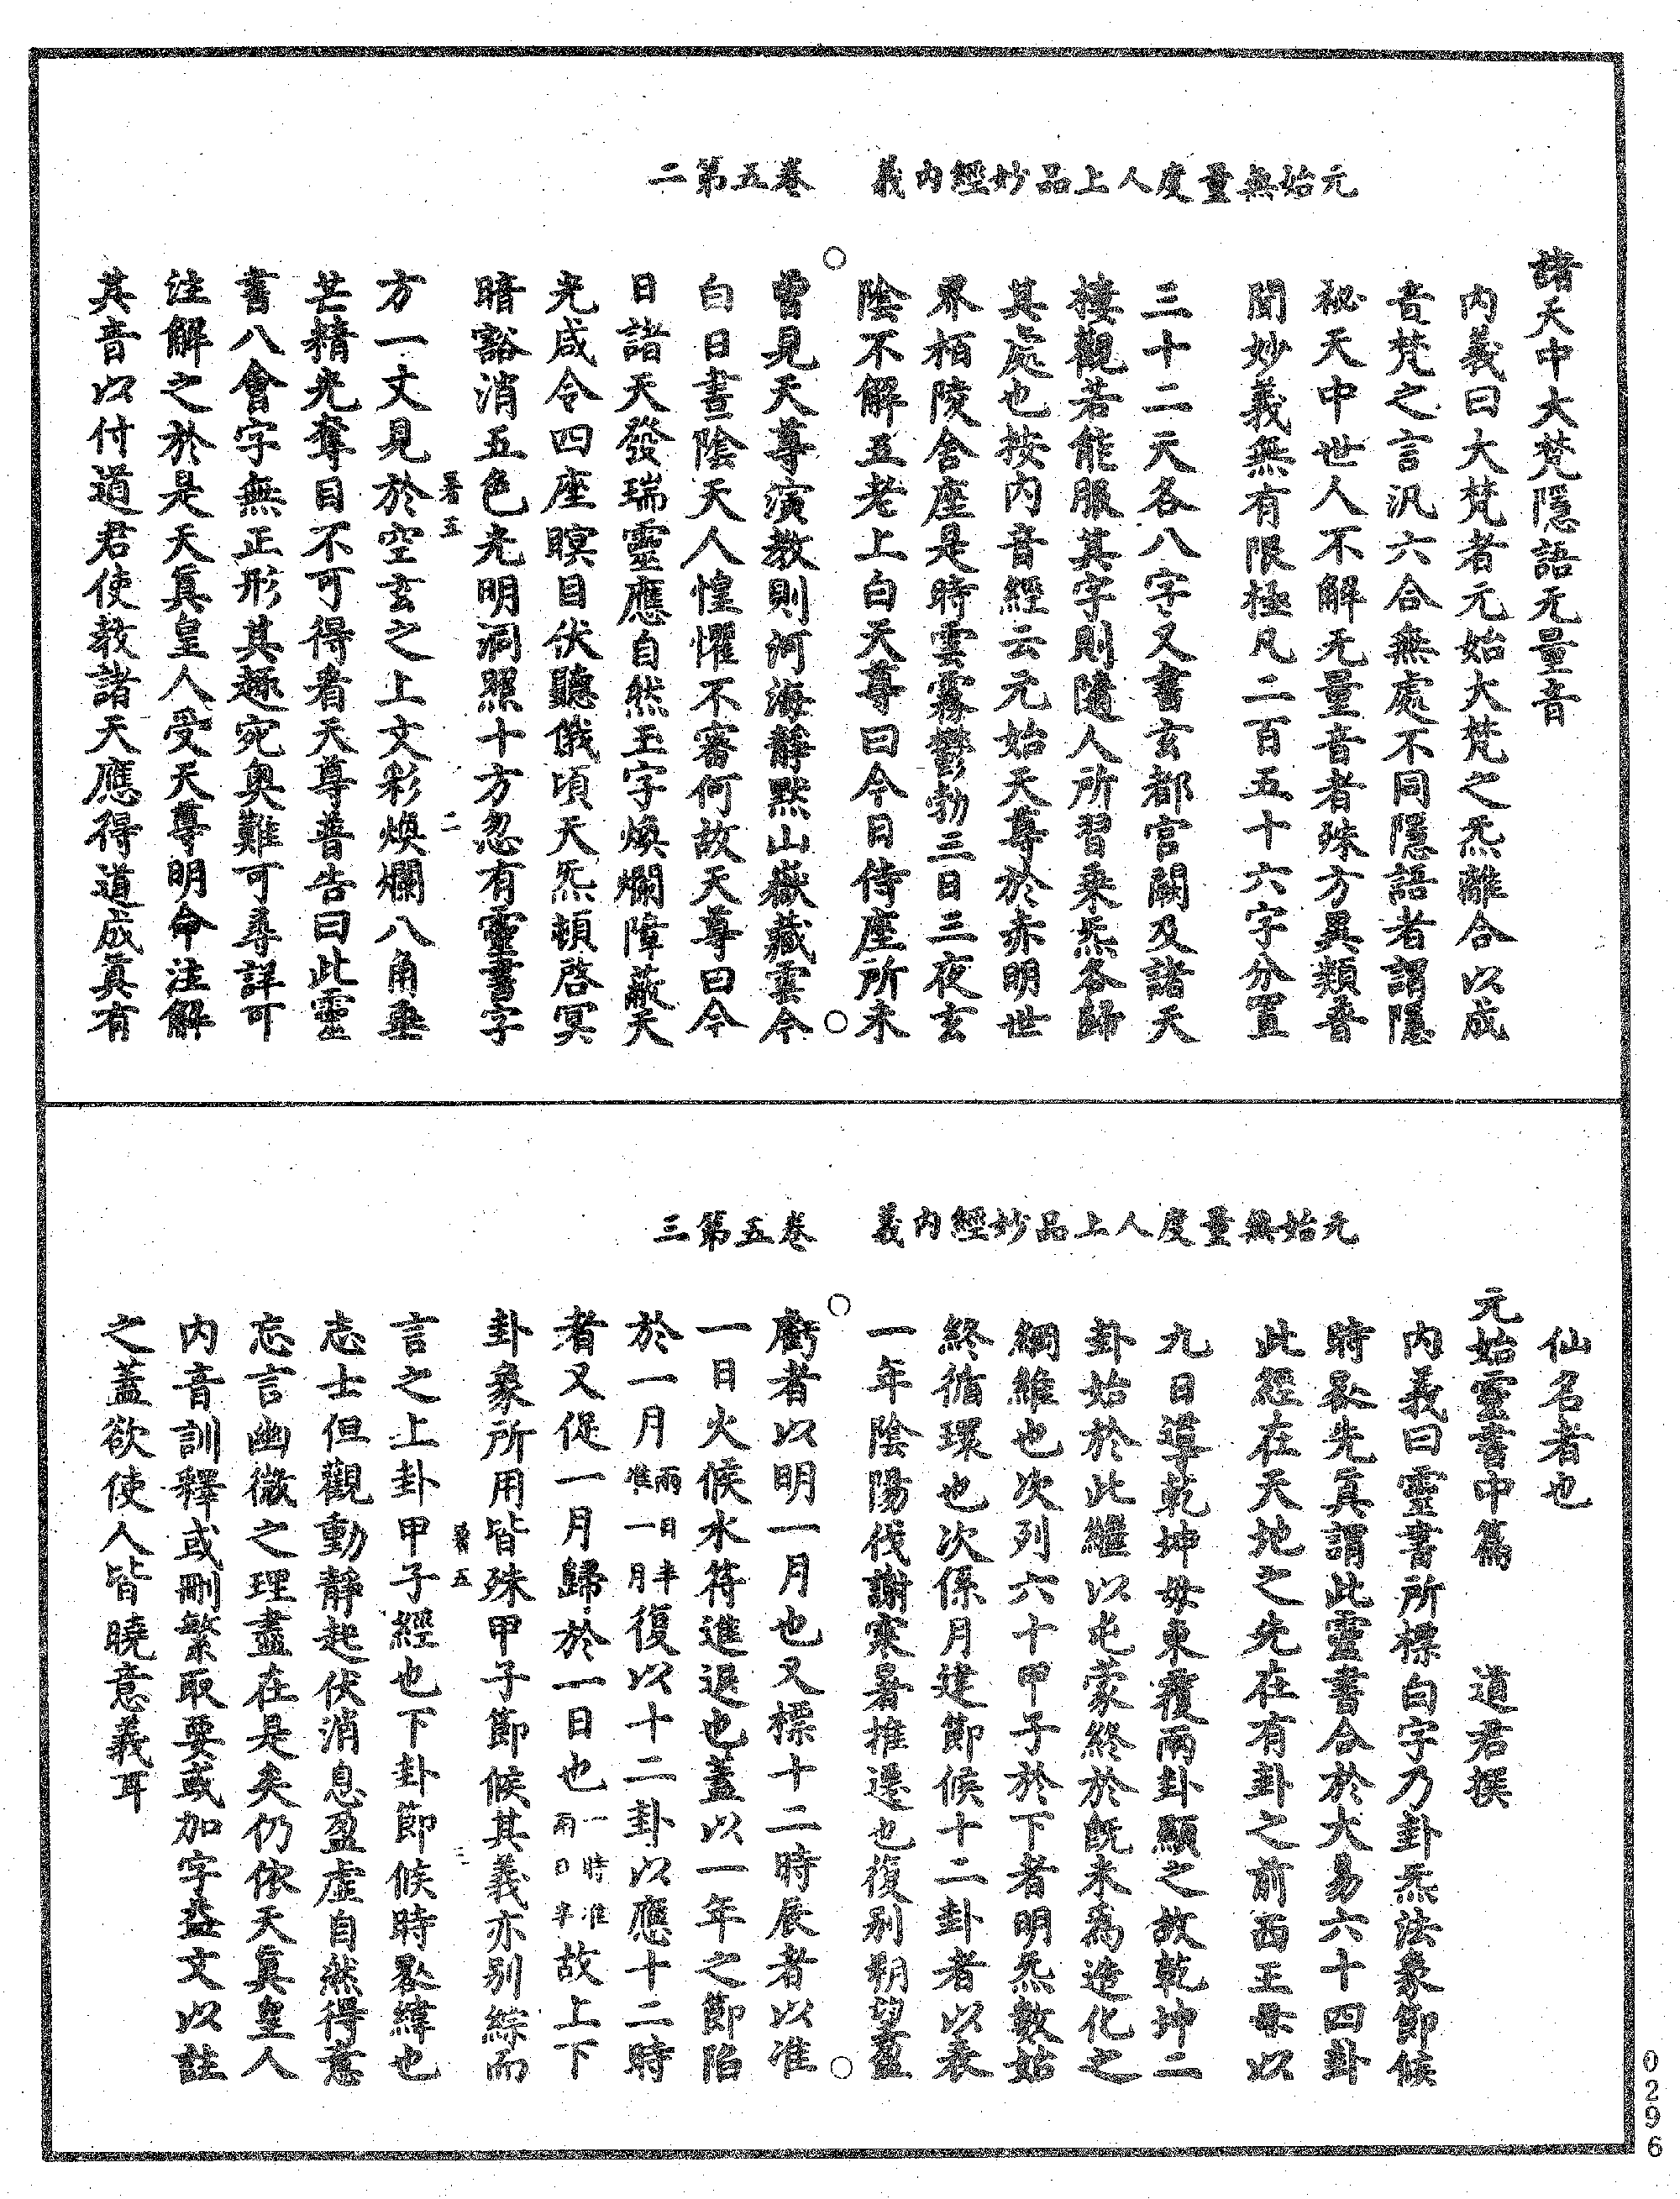 元始無量度人上品妙經內義　卷五第二
諸天中大梵隱語无量音
內義曰大梵者元始大梵之炁離合以成
音梵之言汎六合無處不同隱語者謂隱
祕天中世人不解无量音者殊方異類普
聞妙義無有限極凡二百五十六字分置
三十二天各八字又書玄都宮闕及諸天
樓觀若能服其字則隨人所習乘炁各歸
其處也按內音經云元始天尊於赤明世
界栢陵舍座是時雲霧鬱勃三日三夜玄
陰不解五老上白天尊曰今日侍座所未
曾見天尊演教則河海靜默山嶽藏雲今
白日晝陰天人惶懼不審何故天尊曰今
日諸天發瑞靈應自然玉字煥爛障蔽天
光咸令四座瞑目伏聽俄頃天炁頓啓冥
暗豁消五色光明洞照十方忽有靈書字
方一丈見於空玄之上文彩煥爛八角垂
芒精光奪目不可得看天尊普告曰此靈
書八會字無正形其趣宛奧難可尋詳可
注解之於是天真皇人受天尊明命注解
其音以付道君使教諸天應得道成真有
元始無量度人上品妙經內義　卷五第三
仙名者也
元始靈書中篇　　道君撰
內義曰靈書所標白字乃卦炁法象節候
時晷先真謂此靈書合於大易六十四卦
此經在天地之先在有卦之前西王母以
九日導乾坤母東覆兩卦顯之故乾坤二
卦始於此繼以屯蒙終於旣未爲造化之
綱維也次列六十甲子於下者明炁數始
終循環也次係月建節候十二卦者以表
一年陰陽伐謝寒暑推遷也復別朔望盈
虧者以明一月也又標十二時辰者以准
一日火候水符進退也蓋以一年之節陷
於一月兩日半准一月復以十二卦以應十二時
者又促一月歸於一日也一時准兩日半故上下
卦象所用皆殊甲子節候其義亦別綜而
言之上卦甲子經也下卦節候時晷緯也
志士但觀動靜起伏消息盈虛自然得意
忘言幽微之理盡在是矣仍依天真皇人
內音訓釋或刪繁取要或加字益文以註
之蓋欲使人皆曉意義耳
0296